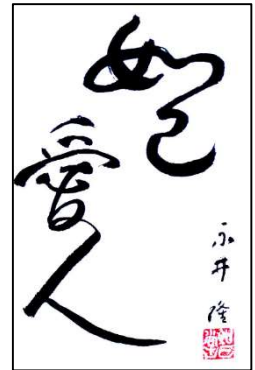 如己
愛人
永井 隆